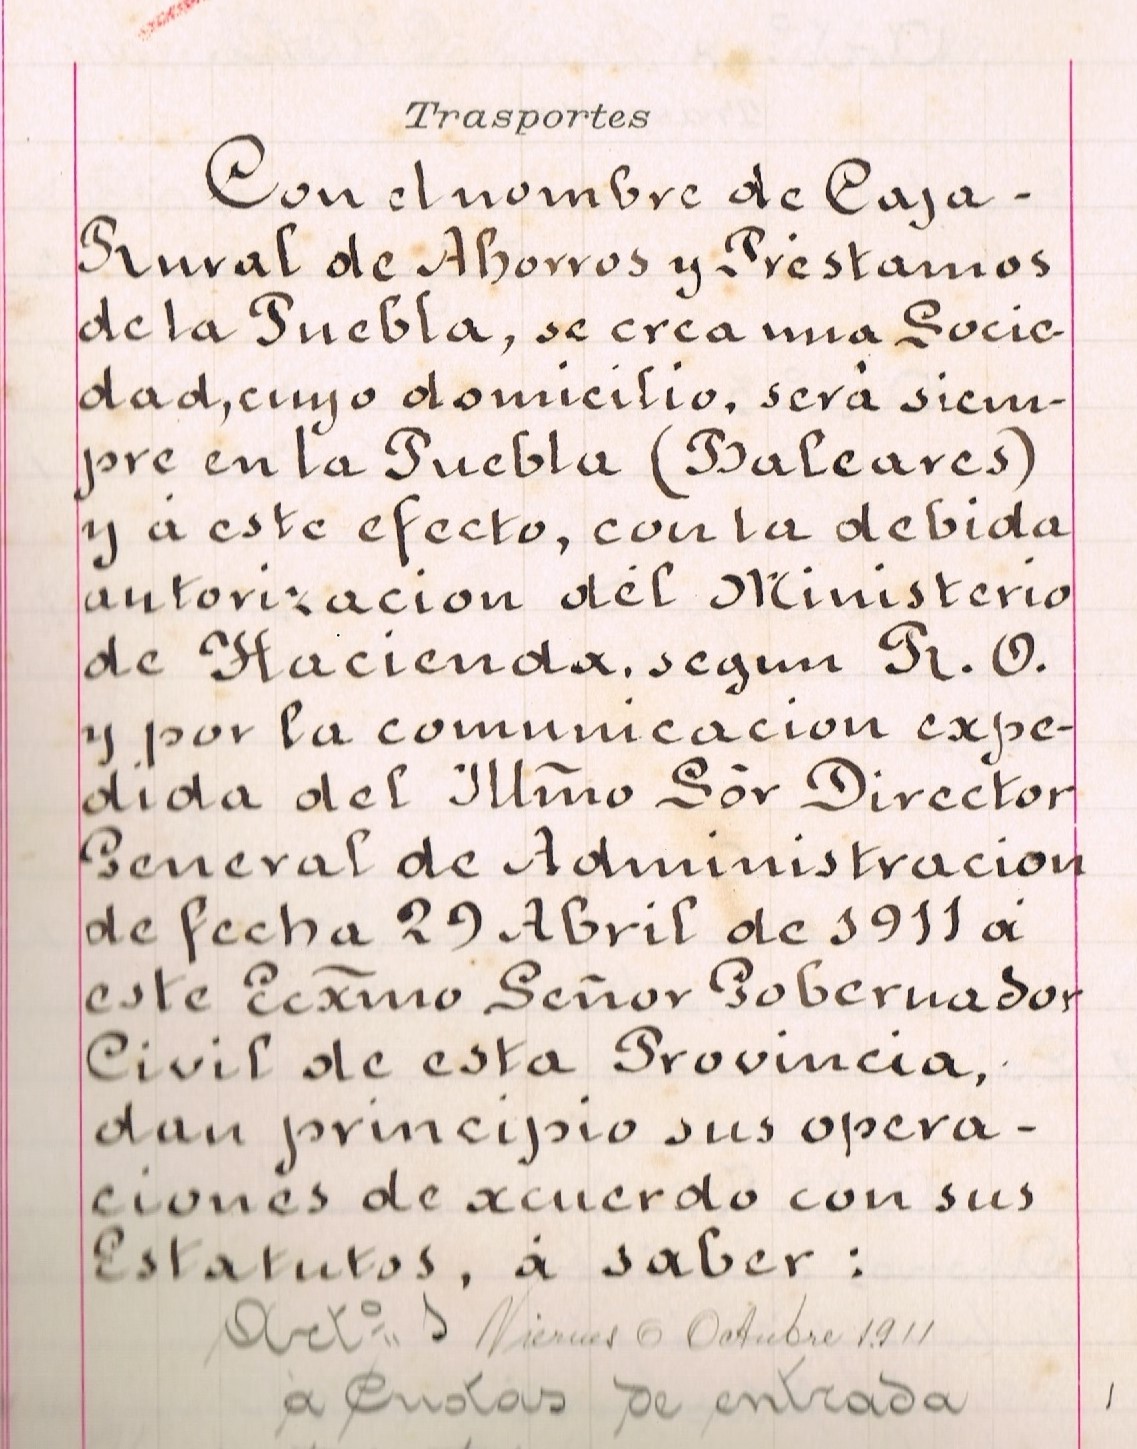 Trasportes
Con el nombre de Caja-
Rural de Ahorros y Préstamos
de la Puebla, se crea una Socie-
dad, cuyo domicilio, será siem-
pre en la Puebla (Baleares)
y á este efecto, con la debida
autorizacion del Ministerio
de Hacienda, segun R. O.
y por la comunicacion expe-
dida del Illm̃o Sôr Director
General de Administracion
de fecha 29 Abril de 1911 á
este Ecxm̃o Señor Gobernador
Civil de esta Provincia,
dan principio sus opera-
ciones de acuerdo con sus
Estatutos, á saber:
Viernes 6 Octubre 1911
a de entrada